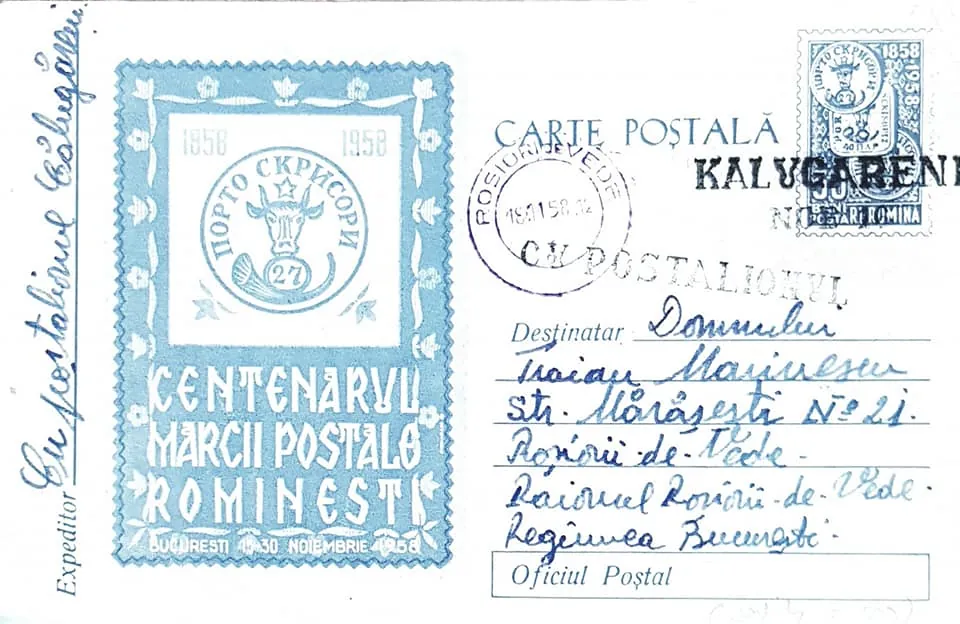 Expeditor Cu postalionul Călugăreni
1858 1958
ПОРТО СКРИСОРИ
27
CENTENARUL
MĂRCII POȘTALE
ROMINEȘTI
BUCUREȘTI 15-30 NOIEMBRIE 1958
CARTE POȘTALĂ
1858 1958
ПОРТО СКРИСОРИ
POSTA R.P. ROMINA
KALUGARENI
NOE
ROȘIORII DE VEDE
CU POSTALIONUL
Destinatar Domnului
Traian Marinescu
Str. Mărășești No 21.
Roșiorii-de-Vede-
Raionul Roșiorii-de-Vede-
Regiunea București-
Oficiul Poștal